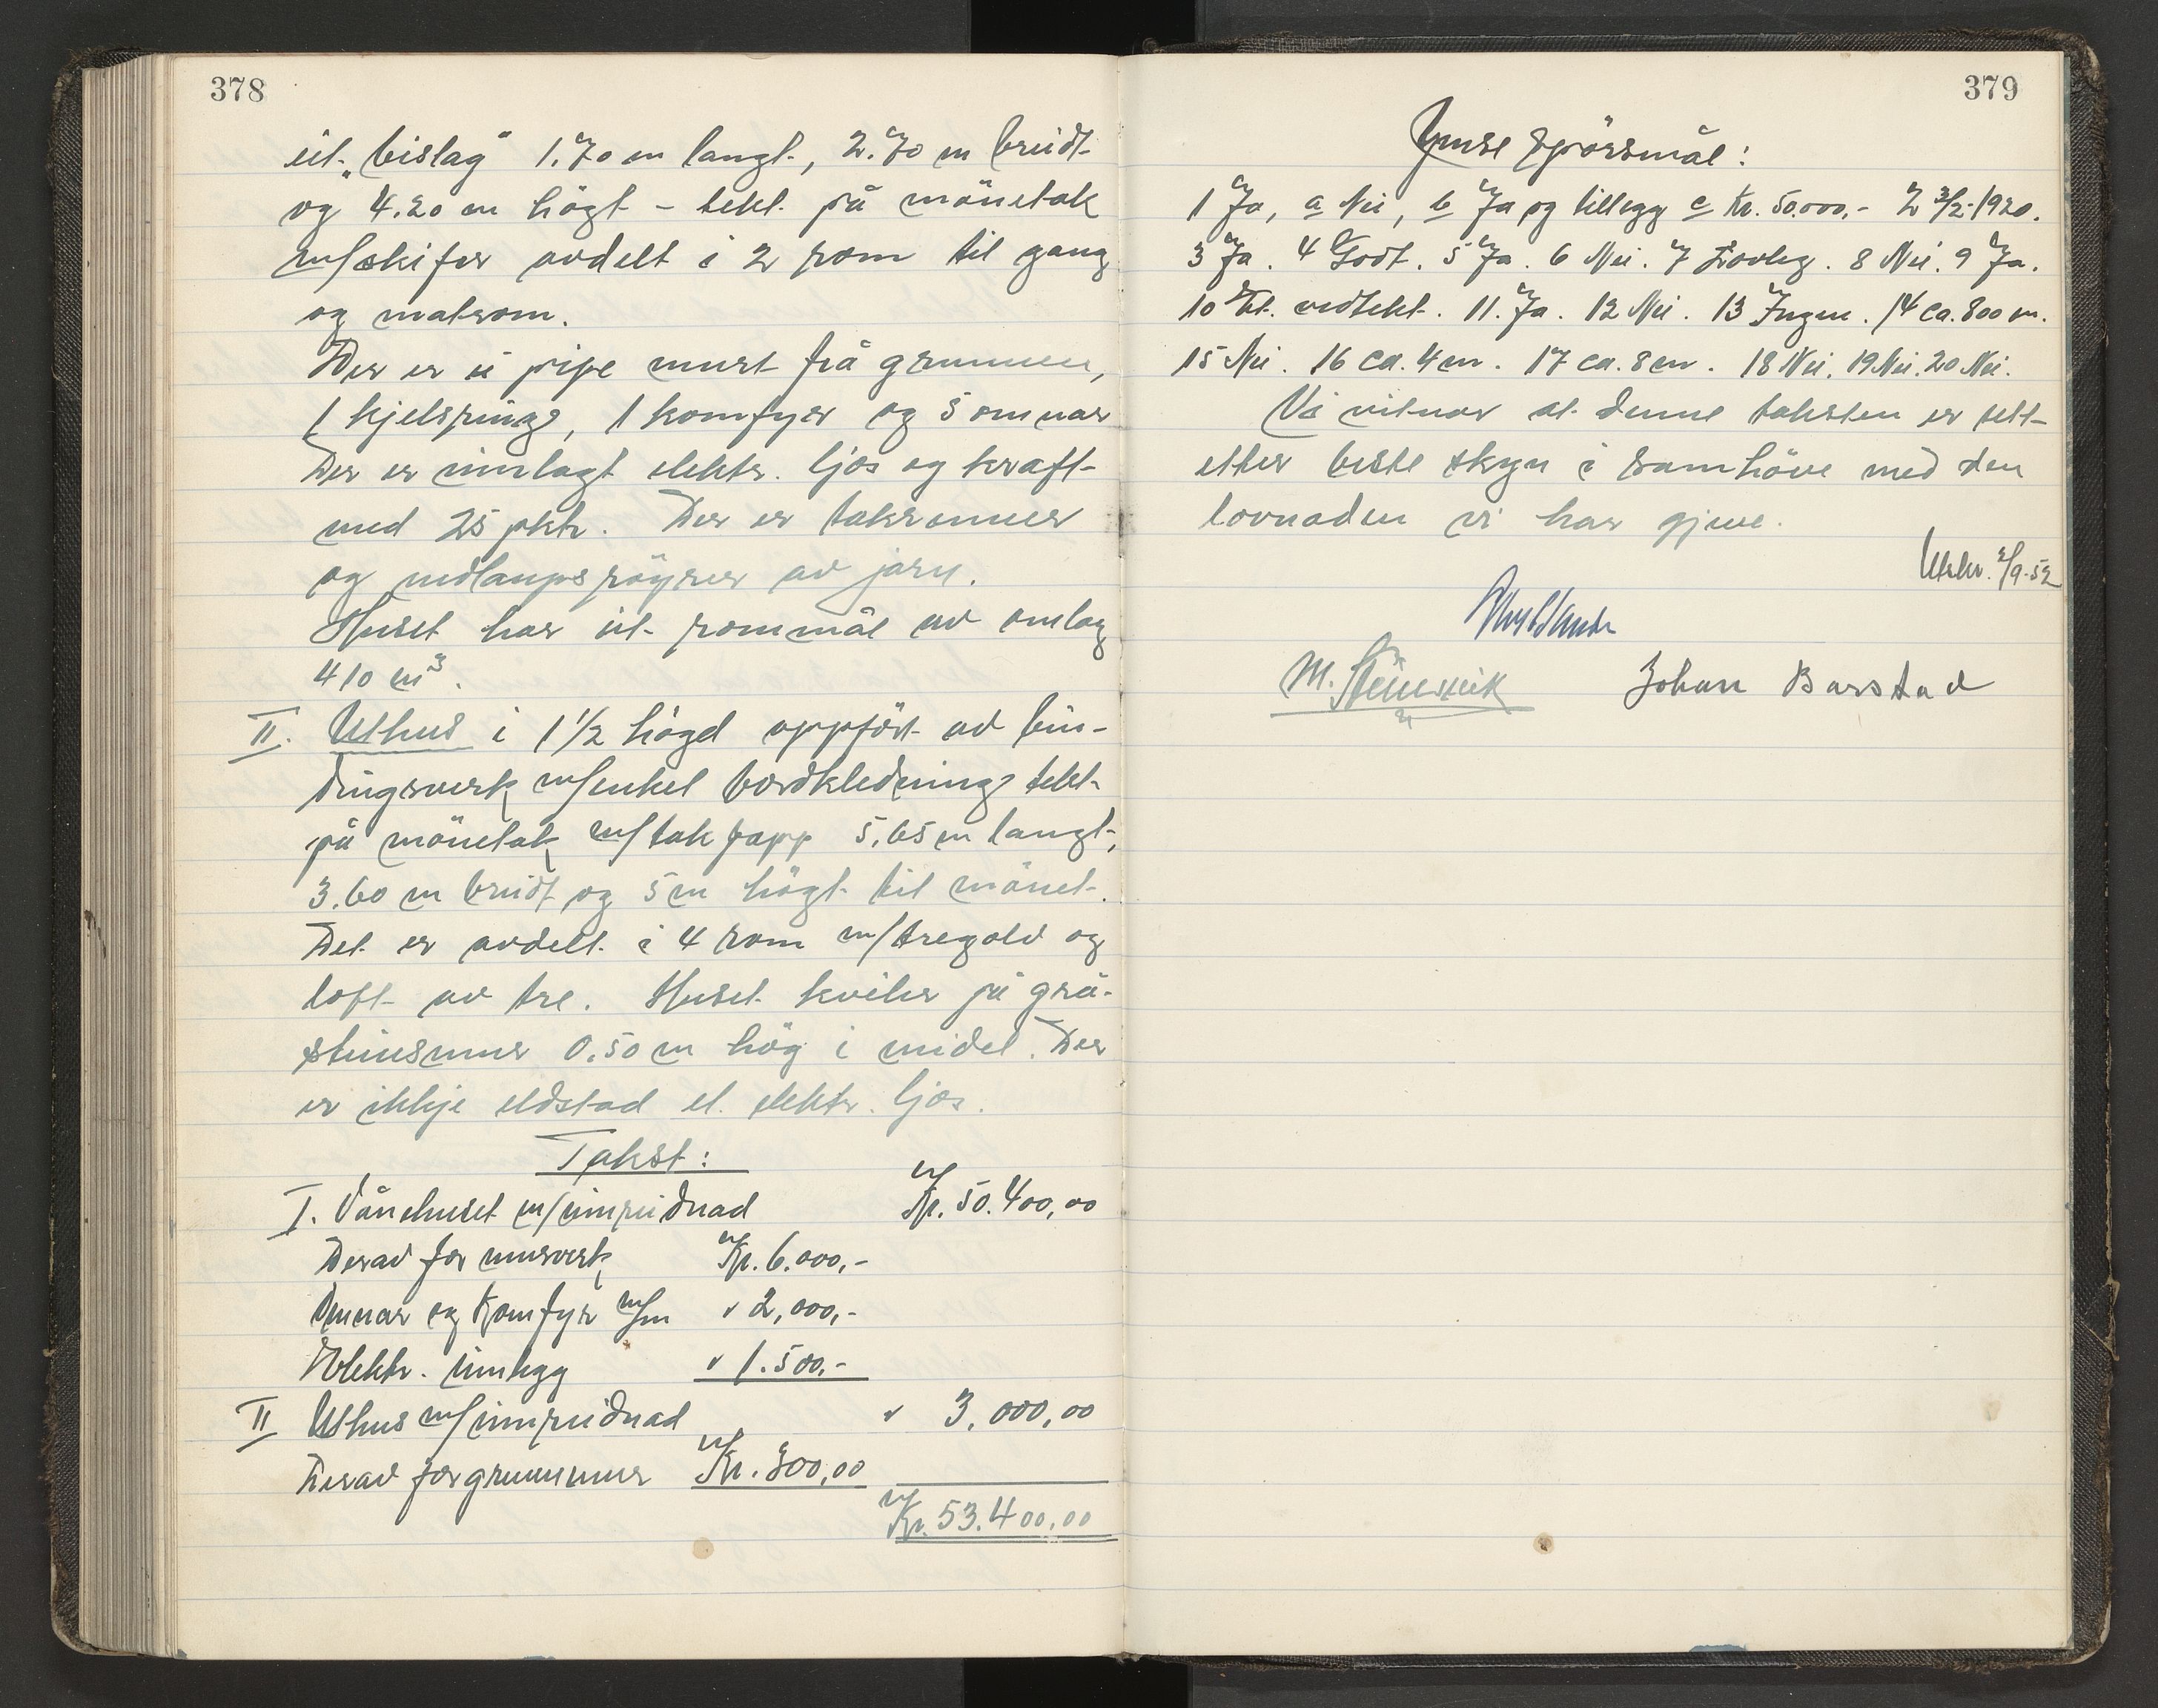 378
eit „bislag" 1.70 m langt, 2.70 m breidt
og 4.20 m högt - tekt på mönetak
m/skifer avdelt i 2 rom til gang
og matrom.
Der er ei pipe murt frå grunnen,
1 kjelspring, 1 komfyr og 5 omnar
Der er innlagt elektr. ljos og kraft
med 25 pktr. Der er takrenner
og nedlaupsröyrer av jarn.
Huset har eit rommål av omlag
410 m³.
II. Uthus i 1½ högd oppfört av bin-
dingsverk m/enkel bordkledning tekt
på mönetak m/takpapp 5,65 m langt,
3.60 m breidt og 5 m högt til mönet.
Det er avdelt i 4 rom m/tregolv og
loft av tre. Huset kviler på grå-
steinsmur 0.50 m hög i midel. Der
er ikkje eldstad el. elektr. ljos.
Takst:
I. Vånehuset m/innreidnad Kr. 50.400,00
Derav for murverk Kr. 6.000,-
Omnar og Komfyr m/m " 2,000,-
Elektr. innlegg " 1.500,-
II Uthus m/innreidnad " 3.000,00
Derav for grunnmur Kr. 300,00
Kr. 53.400,00
379
Ymse spörsmål:
1 Ja, a Nei, b Ja og tillegg c Kr. 50.000,- 2 3/2-1920.
3 Ja. 4 Godt. 5 Ja. 6 Nei. 7 Lovleg. 8 Nei. 9 Ja.
10 El. vedtekt. 11. Ja. 12 Nei. 13 Ingen. 14 ca. 800 m.
15 Nei. 16 ca. 4 m. 17 ca. 8 m. 18 Nei. 19 Nei. 20 Nei.
Vi vitnar at denne taksten er sett
etter beste skyn i samhöve med den
lovnaden vi har gjeve.
Utskr. 2/9-52
M. Steinsvik Johan Barstad